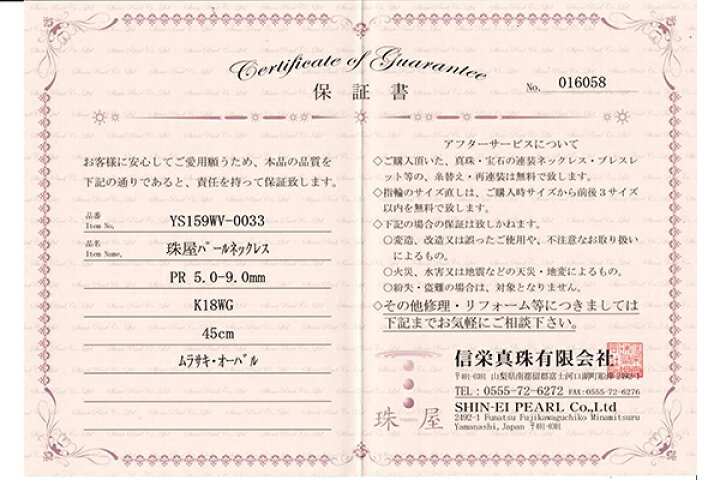 Certificate of Guarantee
保証書
No. 016058
お客様に安心してご愛用願うため、本品の品質を
下記の通りであると、責任を持って保証致します。
品番
Item No, YS159WV-0033
品名
Item Name, 珠屋ﾊﾟｰﾙネックレス
PR 5.0-9.0mm
K18WG
45cm
ムラサキ・オーバル
アフターサービスについて
◇ご購入頂いた、真珠・宝石の連装ネックレス・ブレスレ
ット等の、糸替え・再連装は無料で致します。
◇指輪のサイズ直しは、ご購入時サイズから前後３サイズ
以内を無料で致します。
◇下記の場合の保証は致しかねます。
○変造、改造又は誤ったご使用や、不注意なお取り扱い
によるもの。
○火災、水害又は地震などの天災・地変によるもの。
○紛失・盗難の場合は、対象となりません。
◇その他修理・リフォーム等につきましては
下記までお気軽にご相談下さい。
珠屋
信栄真珠有限会社
〒401-0301 山梨県南都留郡富士河口湖町船津 2492-1
TEL：0555-72-6272 FAX:0555-72-6276
SHIN-EI PEARL Co.,Ltd
2492-1 Funatsu Fujikawaguchiko Minamitsuru
Yamanashi, Japan 〒401-0301